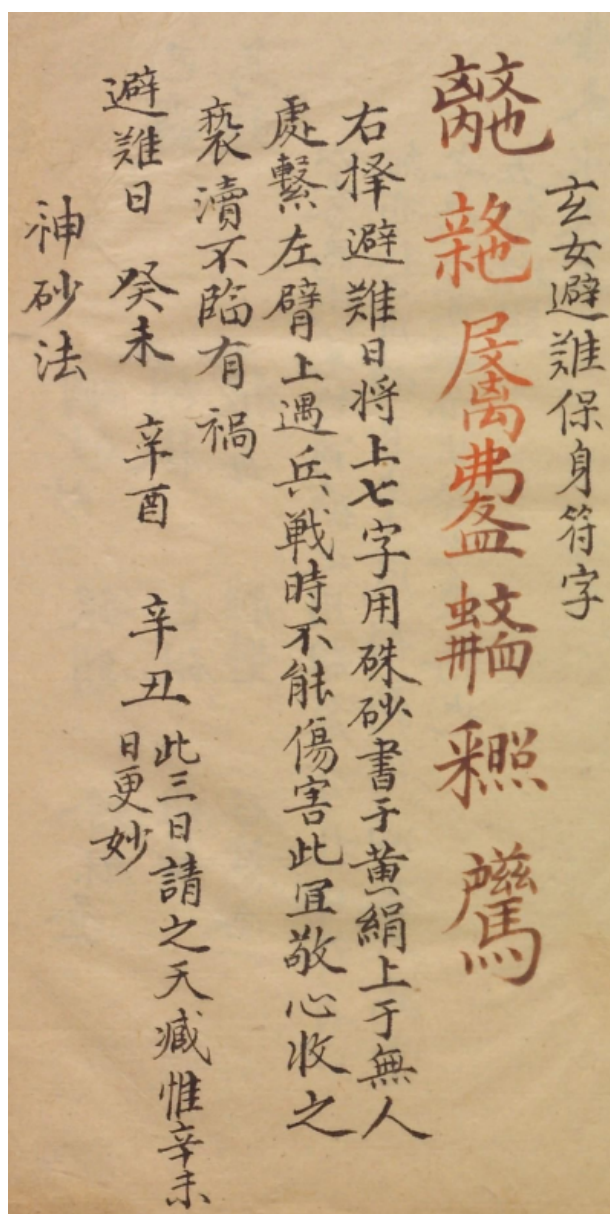 玄女避難保身符字
右择避難日将上七字用硃砂書于黄絹上于無人
處繫左臂上遇兵戦時不能傷害此宜敬心收之
褻瀆不臨有禍
避難日 癸未 辛酉 辛丑 此三日請之天臧惟辛未
日更妙
神砂法